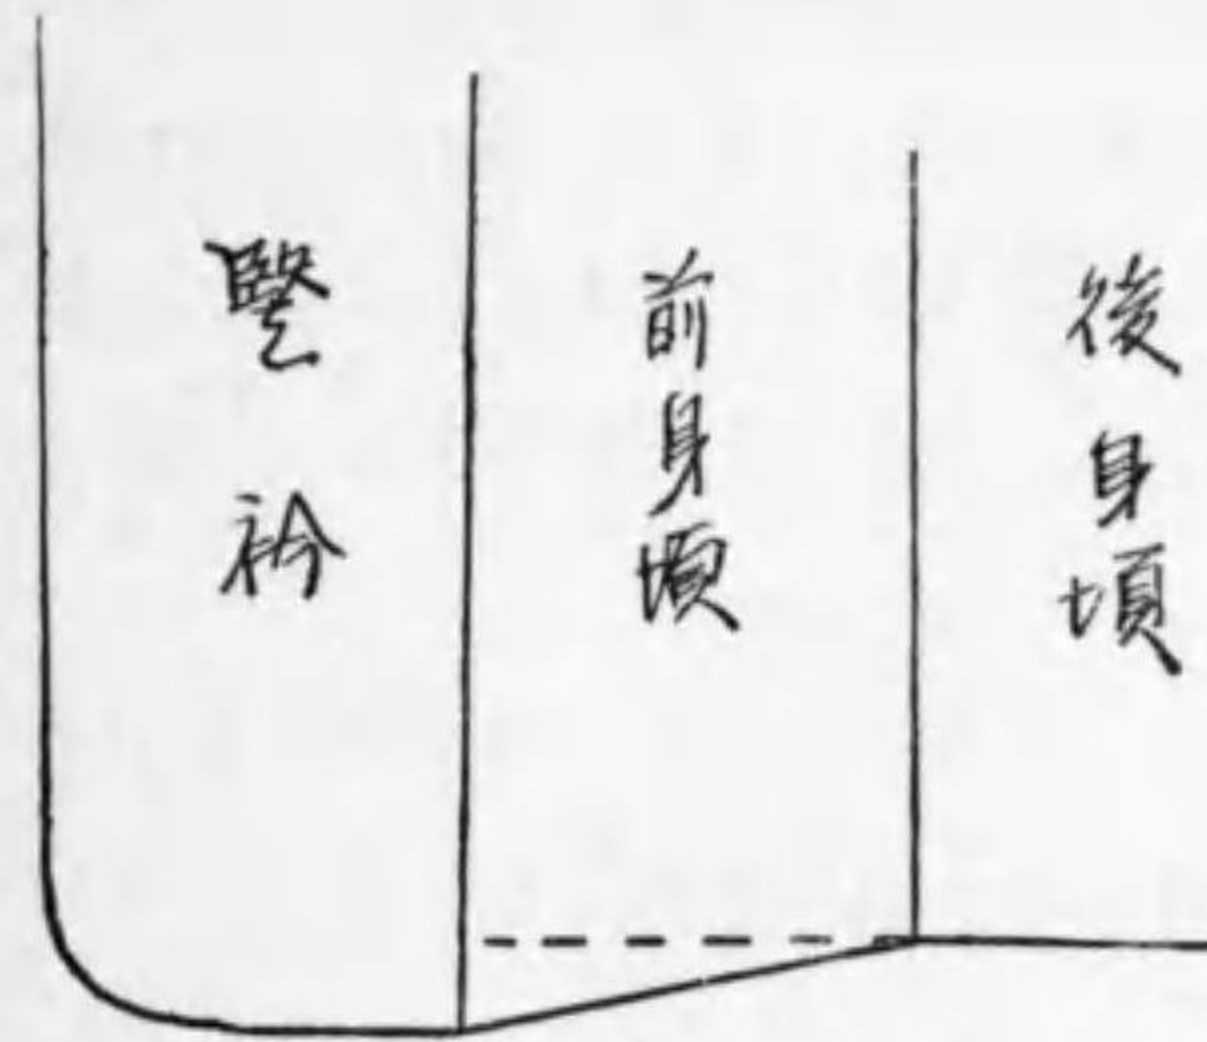 竪衿
前身頃
後身頃